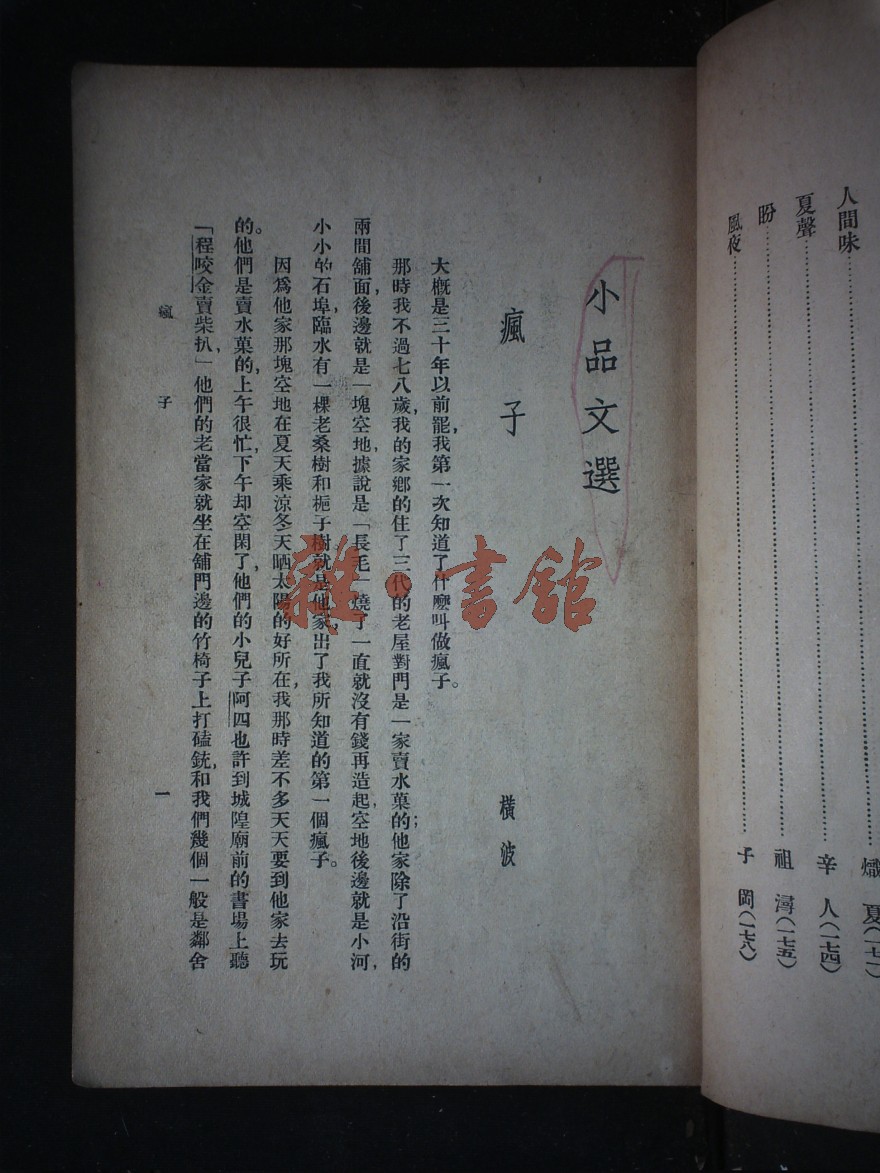 人間味……………………熾 夏(一七一)
夏聲……………………辛 人(一七四)
盼……………………祖 潯(一七五)
風夜……………………子 岡(一七八)
小品文選
瘋子
橫波
大概是三十年以前罷，我第一次知道了什麼叫做瘋子。
那時我不過七八歲，我的家鄉的住了三代的老屋對門是一家賣水菓的；他家除了沿街的
兩間舖面後邊就是一塊空地，據說是「長毛」燒了一直就沒有錢再造起，空地後邊就是小河，
小小的石埠臨水有一棵老桑樹和梔子樹就是他家，出了我所知道的第一個瘋子。
因爲他家那塊空地在夏天乘涼冬天晒太陽的好所在，我那時差不多天天要到他家去玩
的。他們是賣水菓的，上午很忙，下午却空閑了，他們的小兒子阿四也許到城隍廟前的書場上聽
「程咬金賣柴扒，」他們的老當家就坐在舖門邊的竹椅子上打磕銃，和我們幾個一般是鄰舍
瘋子
一
雜·書館